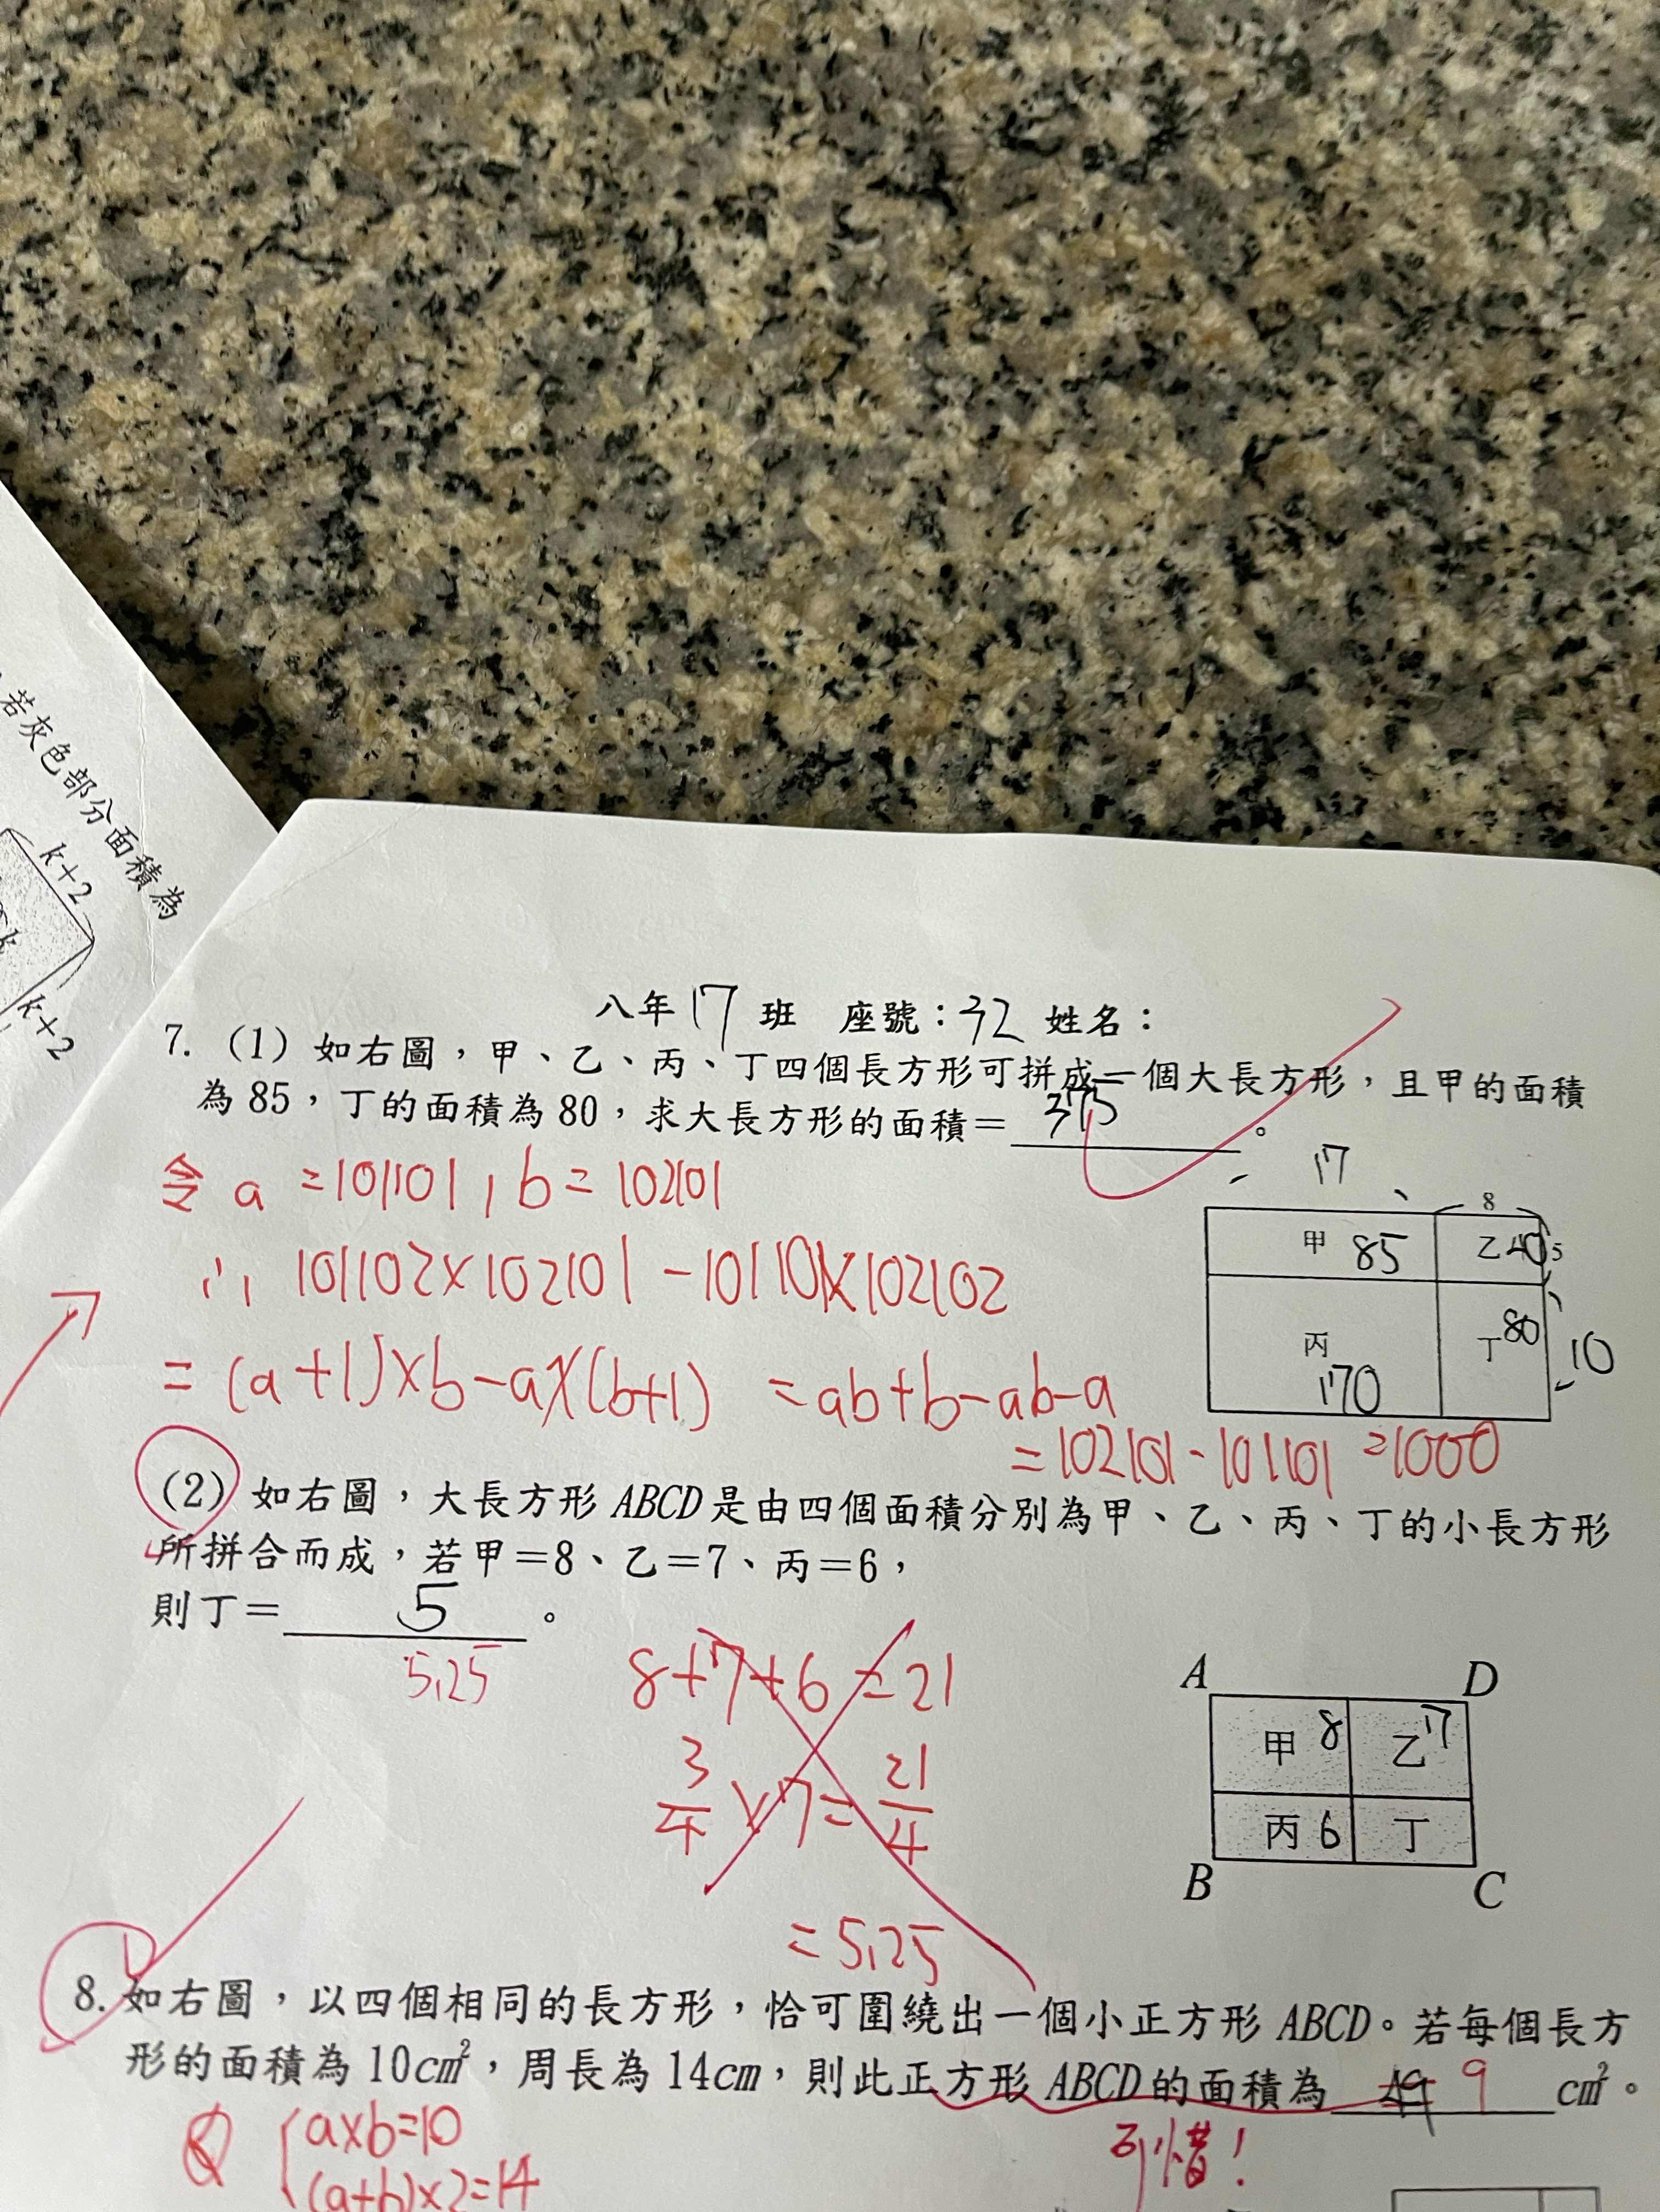 若灰色部分面積為
k+2
k
k+2
八年 17 班 座號：32 姓名：
7. (1) 如右圖，甲、乙、丙、丁四個長方形可拼成一個大長方形，且甲的面積
為 85，丁的面積為 80，求大長方形的面積＝ 375 。
令 a =101101, b = 102101
∴ 101102×102101-101101×102102
= (a+1)×b-a×(b+1) =ab+b-ab-a
=102101-101101=1000
17
8
甲 85 乙 40 5
丙 170 丁 80 10
(2) 如右圖，大長方形 ABCD 是由四個面積分別為甲、乙、丙、丁的小長方形
所拼合而成，若甲＝8、乙＝7、丙＝6，
則丁＝ 5 。
5.25
8+7+6=21
3/4 ×7= 21/4
=5.25
A D
甲 8 乙 7
丙 6 丁
B C
8. 如右圖，以四個相同的長方形，恰可圍繞出一個小正方形 ABCD。若每個長方
形的面積為 10cm²，周長為 14cm，則此正方形 ABCD 的面積為 9 cm²。
可惜！
a×b=10
(a+b)×2=14